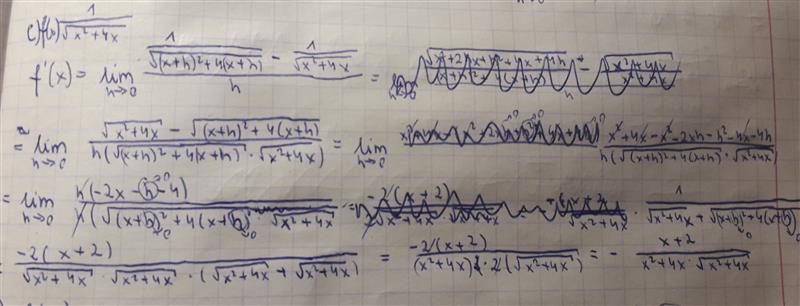 c) f(x) 1/√(x²+4x)
f'(x) = lim h→0 (1/√((x+h)²+4(x+h)) − 1/√(x²+4x))/h =
= lim h→0 (√(x²+4x) − √((x+h)²+4(x+h)))/(h(√((x+h)²+4(x+h)) · √(x²+4x))) = lim h→0 (x²+4x−x²−2xh−h²−4x−4h)/(h(√((x+h)²+4(x+h)) · √(x²+4x)))
= lim h→0 h(−2x−h−4)/(h(√((x+h)²+4(x+h)) √(x²+4x))) · 1/(√(x²+4x) + √((x+h)²+4(x+h)))
−2(x+2)/(√(x²+4x) · √(x²+4x) · (√(x²+4x) + √(x²+4x))) = −2(x+2)/((x²+4x) · 2(√(x²+4x))) = − (x+2)/(x²+4x · √(x²+4x))